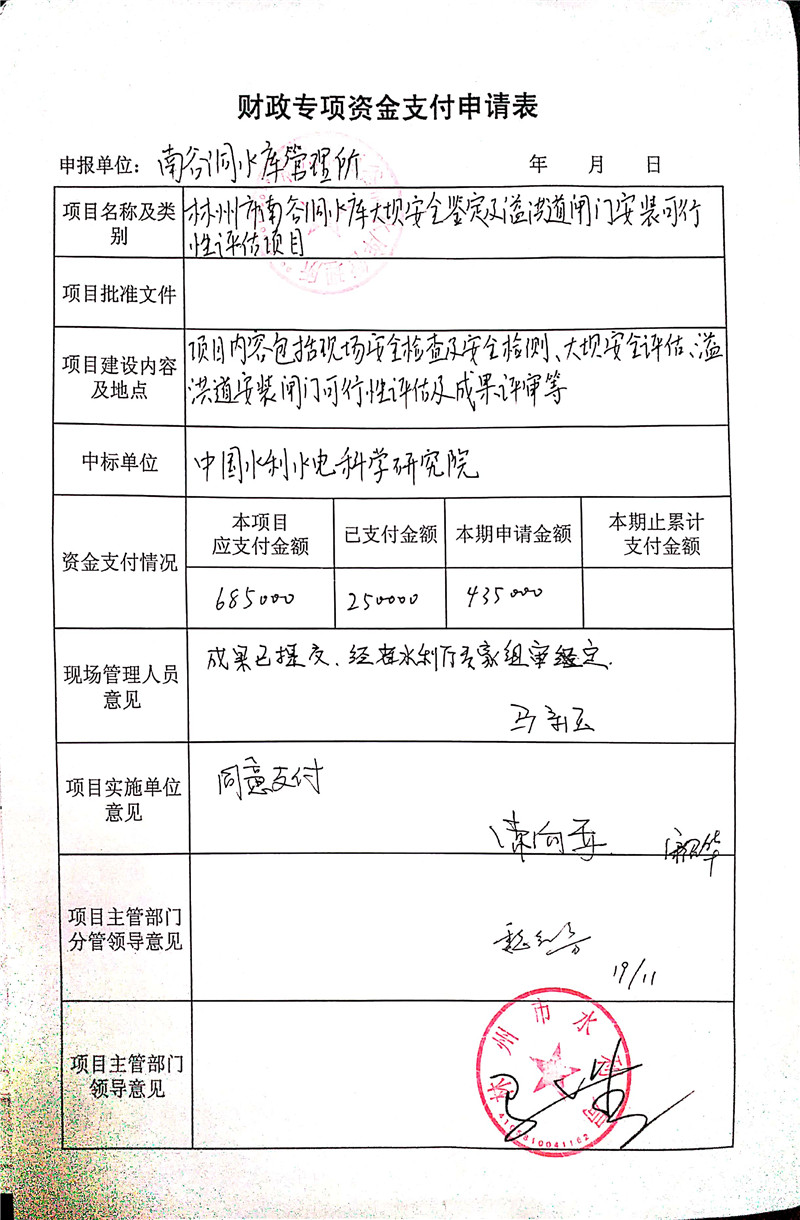 财政专项资金支付申请表
申报单位：南谷洞水库管理所 年 月 日
项目名称及类别
林州市南谷洞水库大坝安全鉴定及溢洪道闸门安装可行
性评估项目
项目批准文件
项目建设内容
及地点
项目内容包括现场安全检查及安全检测、大坝安全评估、溢
洪道安装闸门可行性评估及成果评审等
中标单位
中国水利水电科学研究院
资金支付情况
本项目
应支付金额
已支付金额
本期申请金额
本期止累计
支付金额
685000
250000
435000
现场管理人员
意见
成果已提交、经省水利厅专家组审鉴定.
项目实施单位
意见
同意支付
项目主管部门
分管领导意见
19/11
项目主管部门
领导意见
林州市水利局